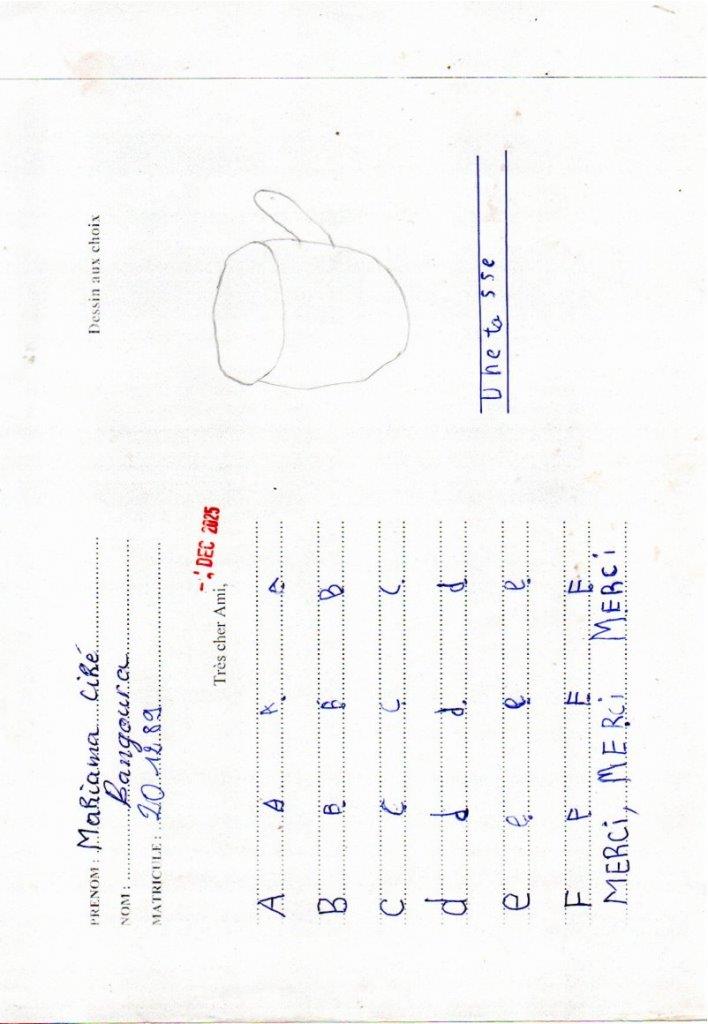 PRENOM : Mariama Ciré
NOM : Bangoura
MATRICULE : 20.12.89
- 1 DEC 2025
Très cher Ami,
A A A A
B B B B
C C C C
d d d d
e e e e
F F F F
MERCI, MERCI MERCI
Dessin aux choix
Une ta sse